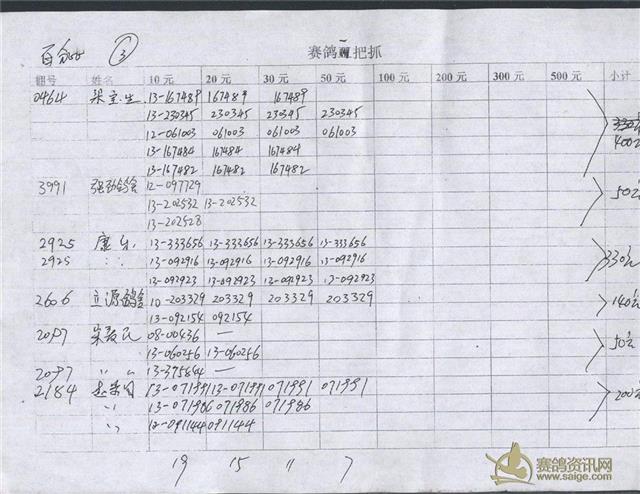 百分 ③ 赛鸽 把抓
棚号 姓名 10元 20元 30元 50元 100元 200元 300元 500元 小计
0464 梁宝生 13-167489 167489 167489
13-230345 230345 230345 230345
12-061003 061003 061003 061003
13-167484 167484 167484 400元
13-167482 167482 167482
3991 12-097729
13-202532 13-202532 50元
13-202528
2925 康乐 13-333656 13-333656 13-333656 13-333656
2925 〃 13-092916 13-092916 13-092916 13-092916 330元
13-092923 13-092923 13-092923 13-092923
2606 立源鸽舍 10-203329 203329 203329 203329 140元
13-092154 092154
2097 08-00436 —
13-060256 13-060256 50元
2097 〃 〃 13-375844 —
2184 13-071991 13-071991 071991 071991
〃 13-071986 071986 071986 200元
〃 12-091144 091144
19 15 11 7
赛鸽资讯网
www.saige.com